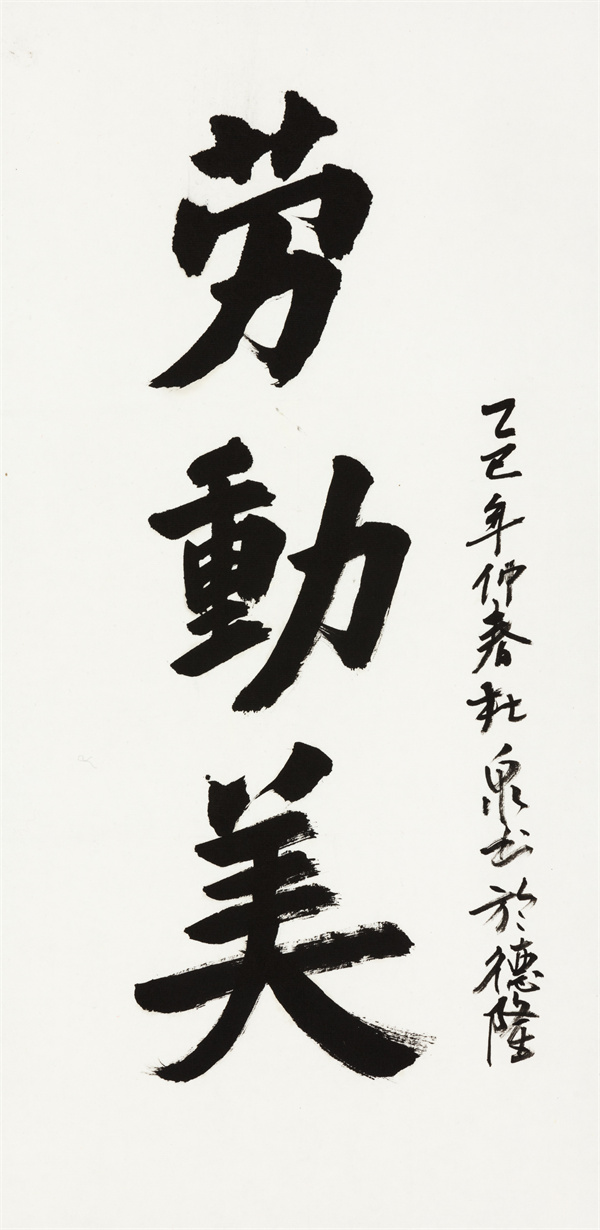 劳動美
乙巳年仲春杜泉书於德隆